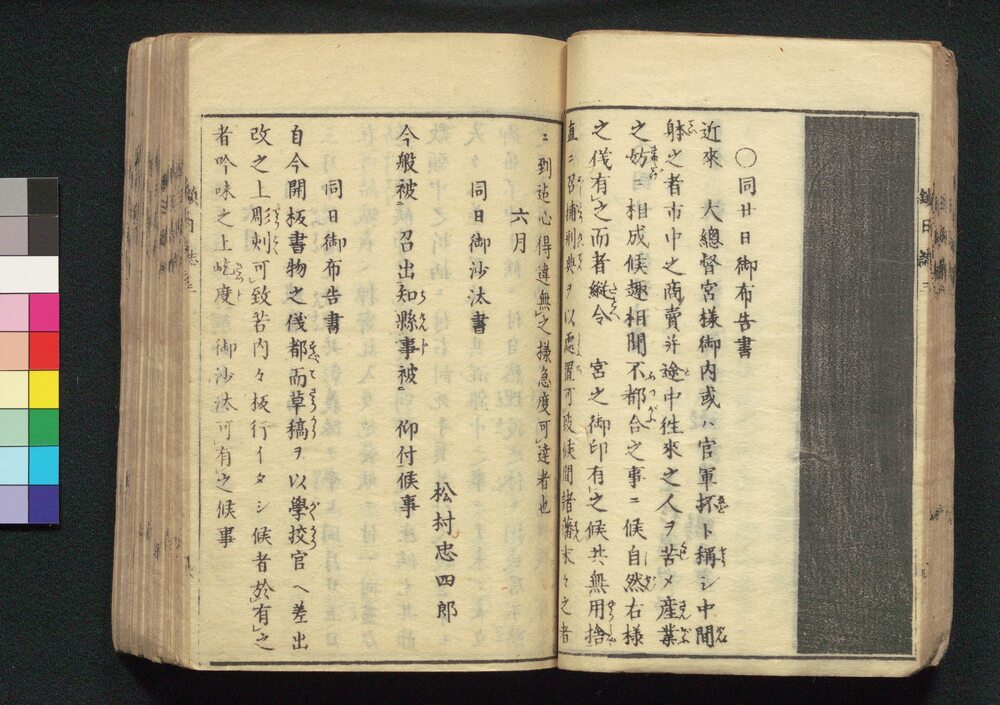 〇同廿日御布告書
近來 大總督宮様御内或ハ官軍抔ト稱シ中間
躰之者市中之商賣并途中徃來之人ヲ苦メ産業
之妨 相成候趣相聞不都合之事ニ候自然右様
之儀有之而者縱令 宮之御印有之候共無用捨
直ニ召捕刑典ヲ以處置可致候間諸藩末々之者
ニ到迠心得違無之様急度可達者也
六月
同日御沙汰書
松村忠四郎
今般被 召出知縣事被 仰付候事
同日御布告書
自今開板書物之儀都而草稿ヲ以學挍官ヘ差出
改之上彫刻可致若内々板行イタシ候者於有之
者吟味之上屹度御沙汰可有之候事